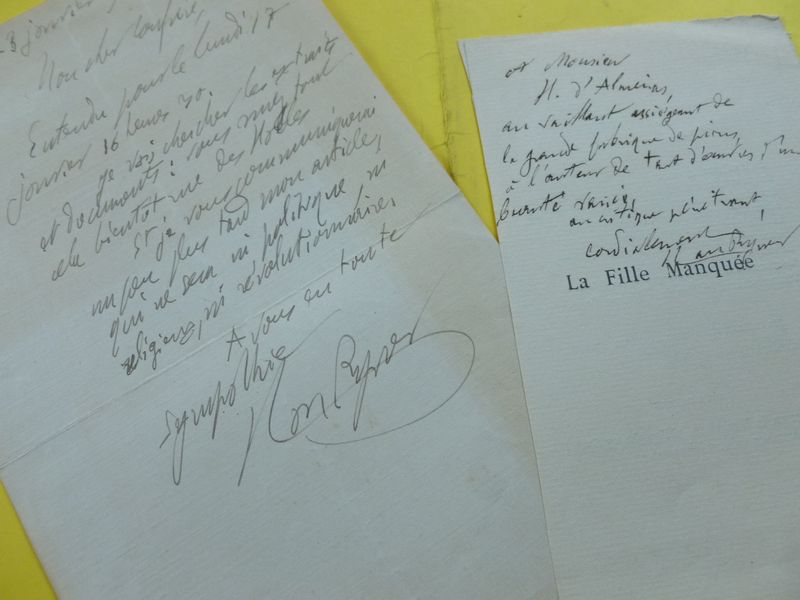 janvier
Mon cher confrère,
Entendu pour le lundi 17
janvier 16 heures 30.
Je vais chercher les extraits
et documents: vous aurez tout
cela bientôt rue des Halles
Et je vous communiquerai
un peu plus tard mon article,
qui ne sera ni politique ni
religieux, ni révolutionnaire.
A vous en toute
sympathie
Han Ryner
A Monsieur
H. d'Almeras,
au vaillant assiégeant de
la grande fabrique de pions,
à l'auteur de tant d'œuvres d'une
beauté variée,
au critique pénétrant,
cordialement
Han Ryner
La Fille Manquée